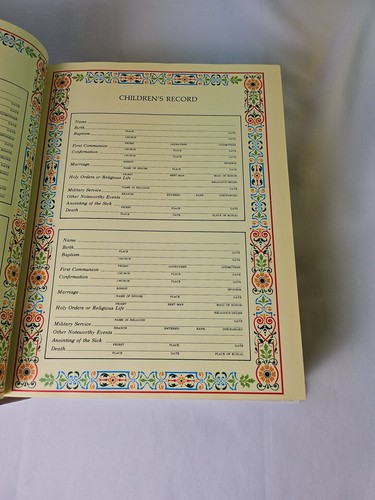 CHILDREN'S RECORD
Name
Birth
PLACE DATE
Baptism
CHURCH DATE
PRIEST GODFATHER GODMOTHER
First Communion
CHURCH PLACE DATE
Confirmation
CHURCH PLACE DATE
BISHOP SPONSOR
Marriage
NAME OF SPOUSE PLACE DATE
PRIEST BEST MAN MAID OF HONOR
Holy Orders or Religious Life
RELIGIOUS ORDER
NAME IN RELIGION DATE
Military Service
BRANCH ENTERED RANK DISCHARGED
Other Noteworthy Events
Anointing of the Sick
PRIEST PLACE DATE
Death
PLACE DATE PLACE OF BURIAL
Name
Birth
PLACE DATE
Baptism
CHURCH DATE
PRIEST GODFATHER GODMOTHER
First Communion
CHURCH PLACE DATE
Confirmation
CHURCH PLACE DATE
BISHOP SPONSOR
Marriage
NAME OF SPOUSE PLACE DATE
PRIEST BEST MAN MAID OF HONOR
Holy Orders or Religious Life
RELIGIOUS ORDER
NAME IN RELIGION DATE
Military Service
BRANCH ENTERED RANK DISCHARGED
Other Noteworthy Events
Anointing of the Sick
PRIEST PLACE DATE
Death
PLACE DATE PLACE OF BURIAL